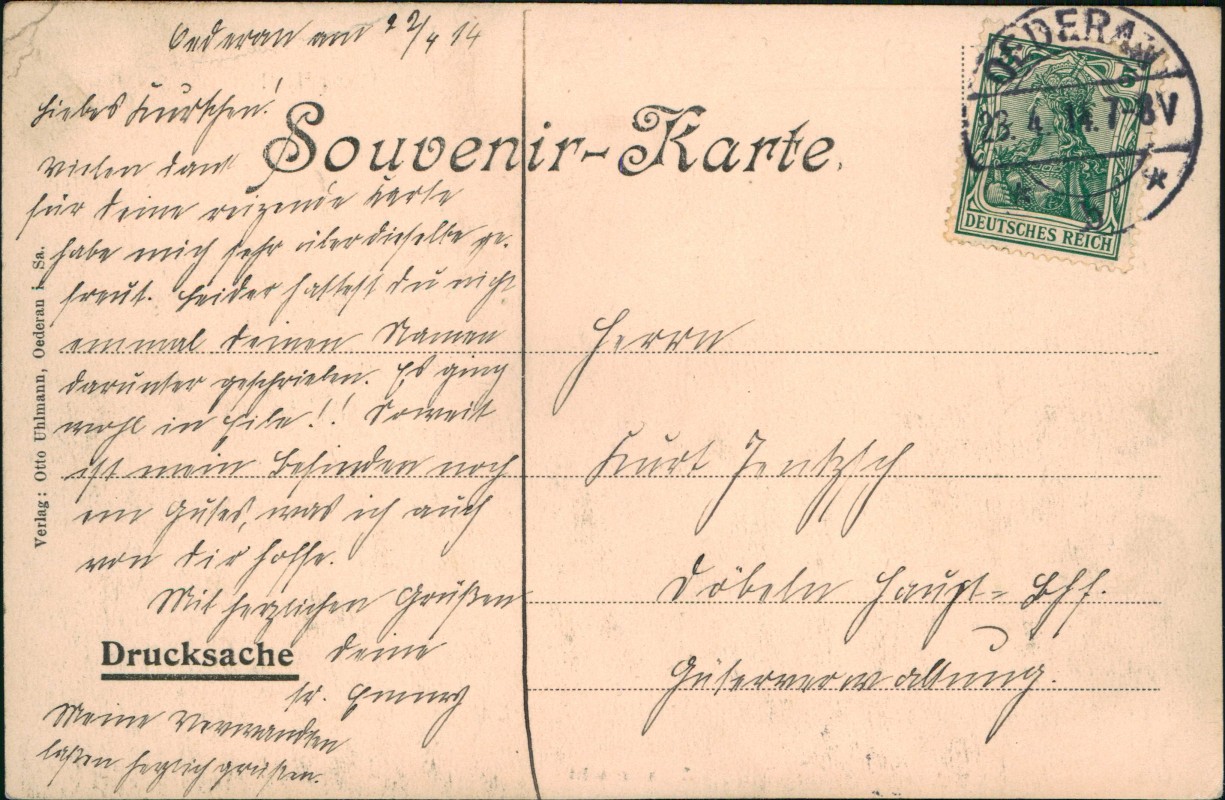 Oederan am 22/4 14
Liebes Kurtchen!
Souvenir-Karte.
Vielen dank
für deine reizende Karte
habe mich sehr über dieselbe ge-
freut. Leider hattest du nicht
einmal deinen Namen
darunter geschrieben. Es ging
wohl in Eile!! Soweit
ist mein Befinden noch
ein Gutes, was ich auch
von dir hoffe.
Mit herzlichen Grüßen
deine
Meine Verwandten
laßen herzlich grüßen.
Drucksache
Verlag: Otto Uhlmann, Oederan i. Sa.
OEDERAN
23. 4. 14. 7-8V
* b *
5
DEUTSCHES REICH
Herrn
Kurt Jentzsch
Döbeln Haupt-Bhf.
Güterverwaltung.